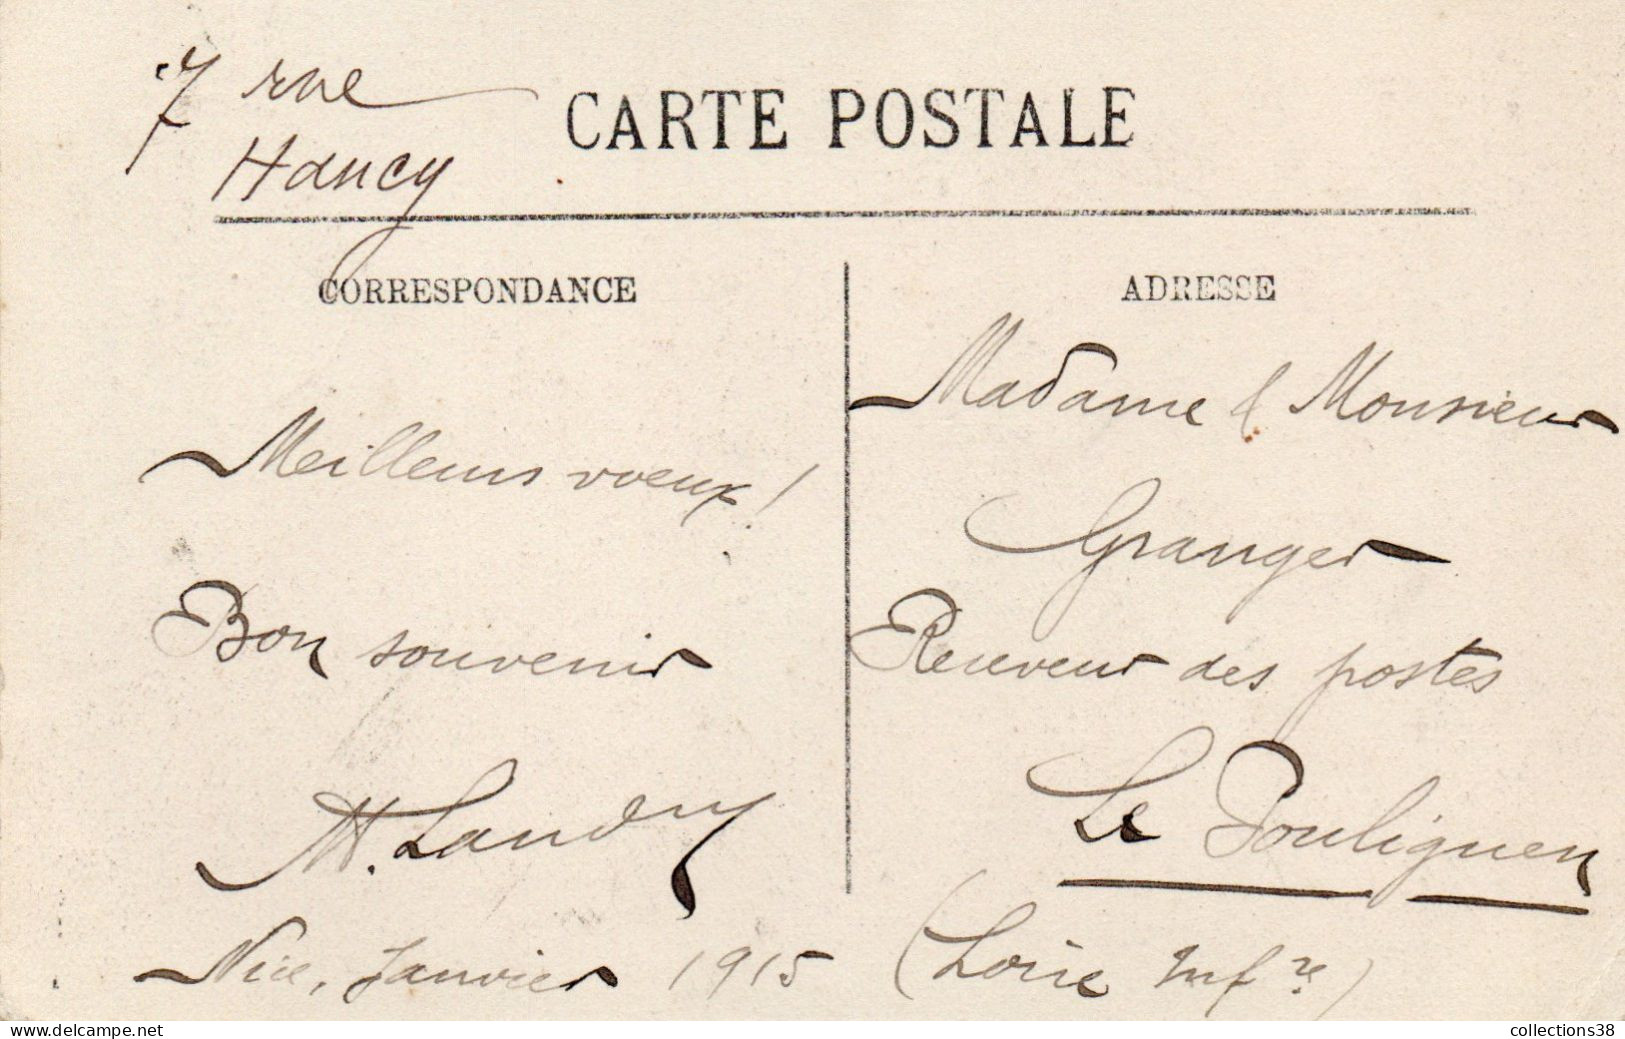 7 rue
Hancy
CARTE POSTALE
CORRESPONDANCE
Meilleurs voeux !
Bon souvenir
M. Landry
Nice, Janvier 1915
ADRESSE
Madame & Monsieur
Granger
Receveur des postes
Le Pouliguen
(Loire Infre)
collections38